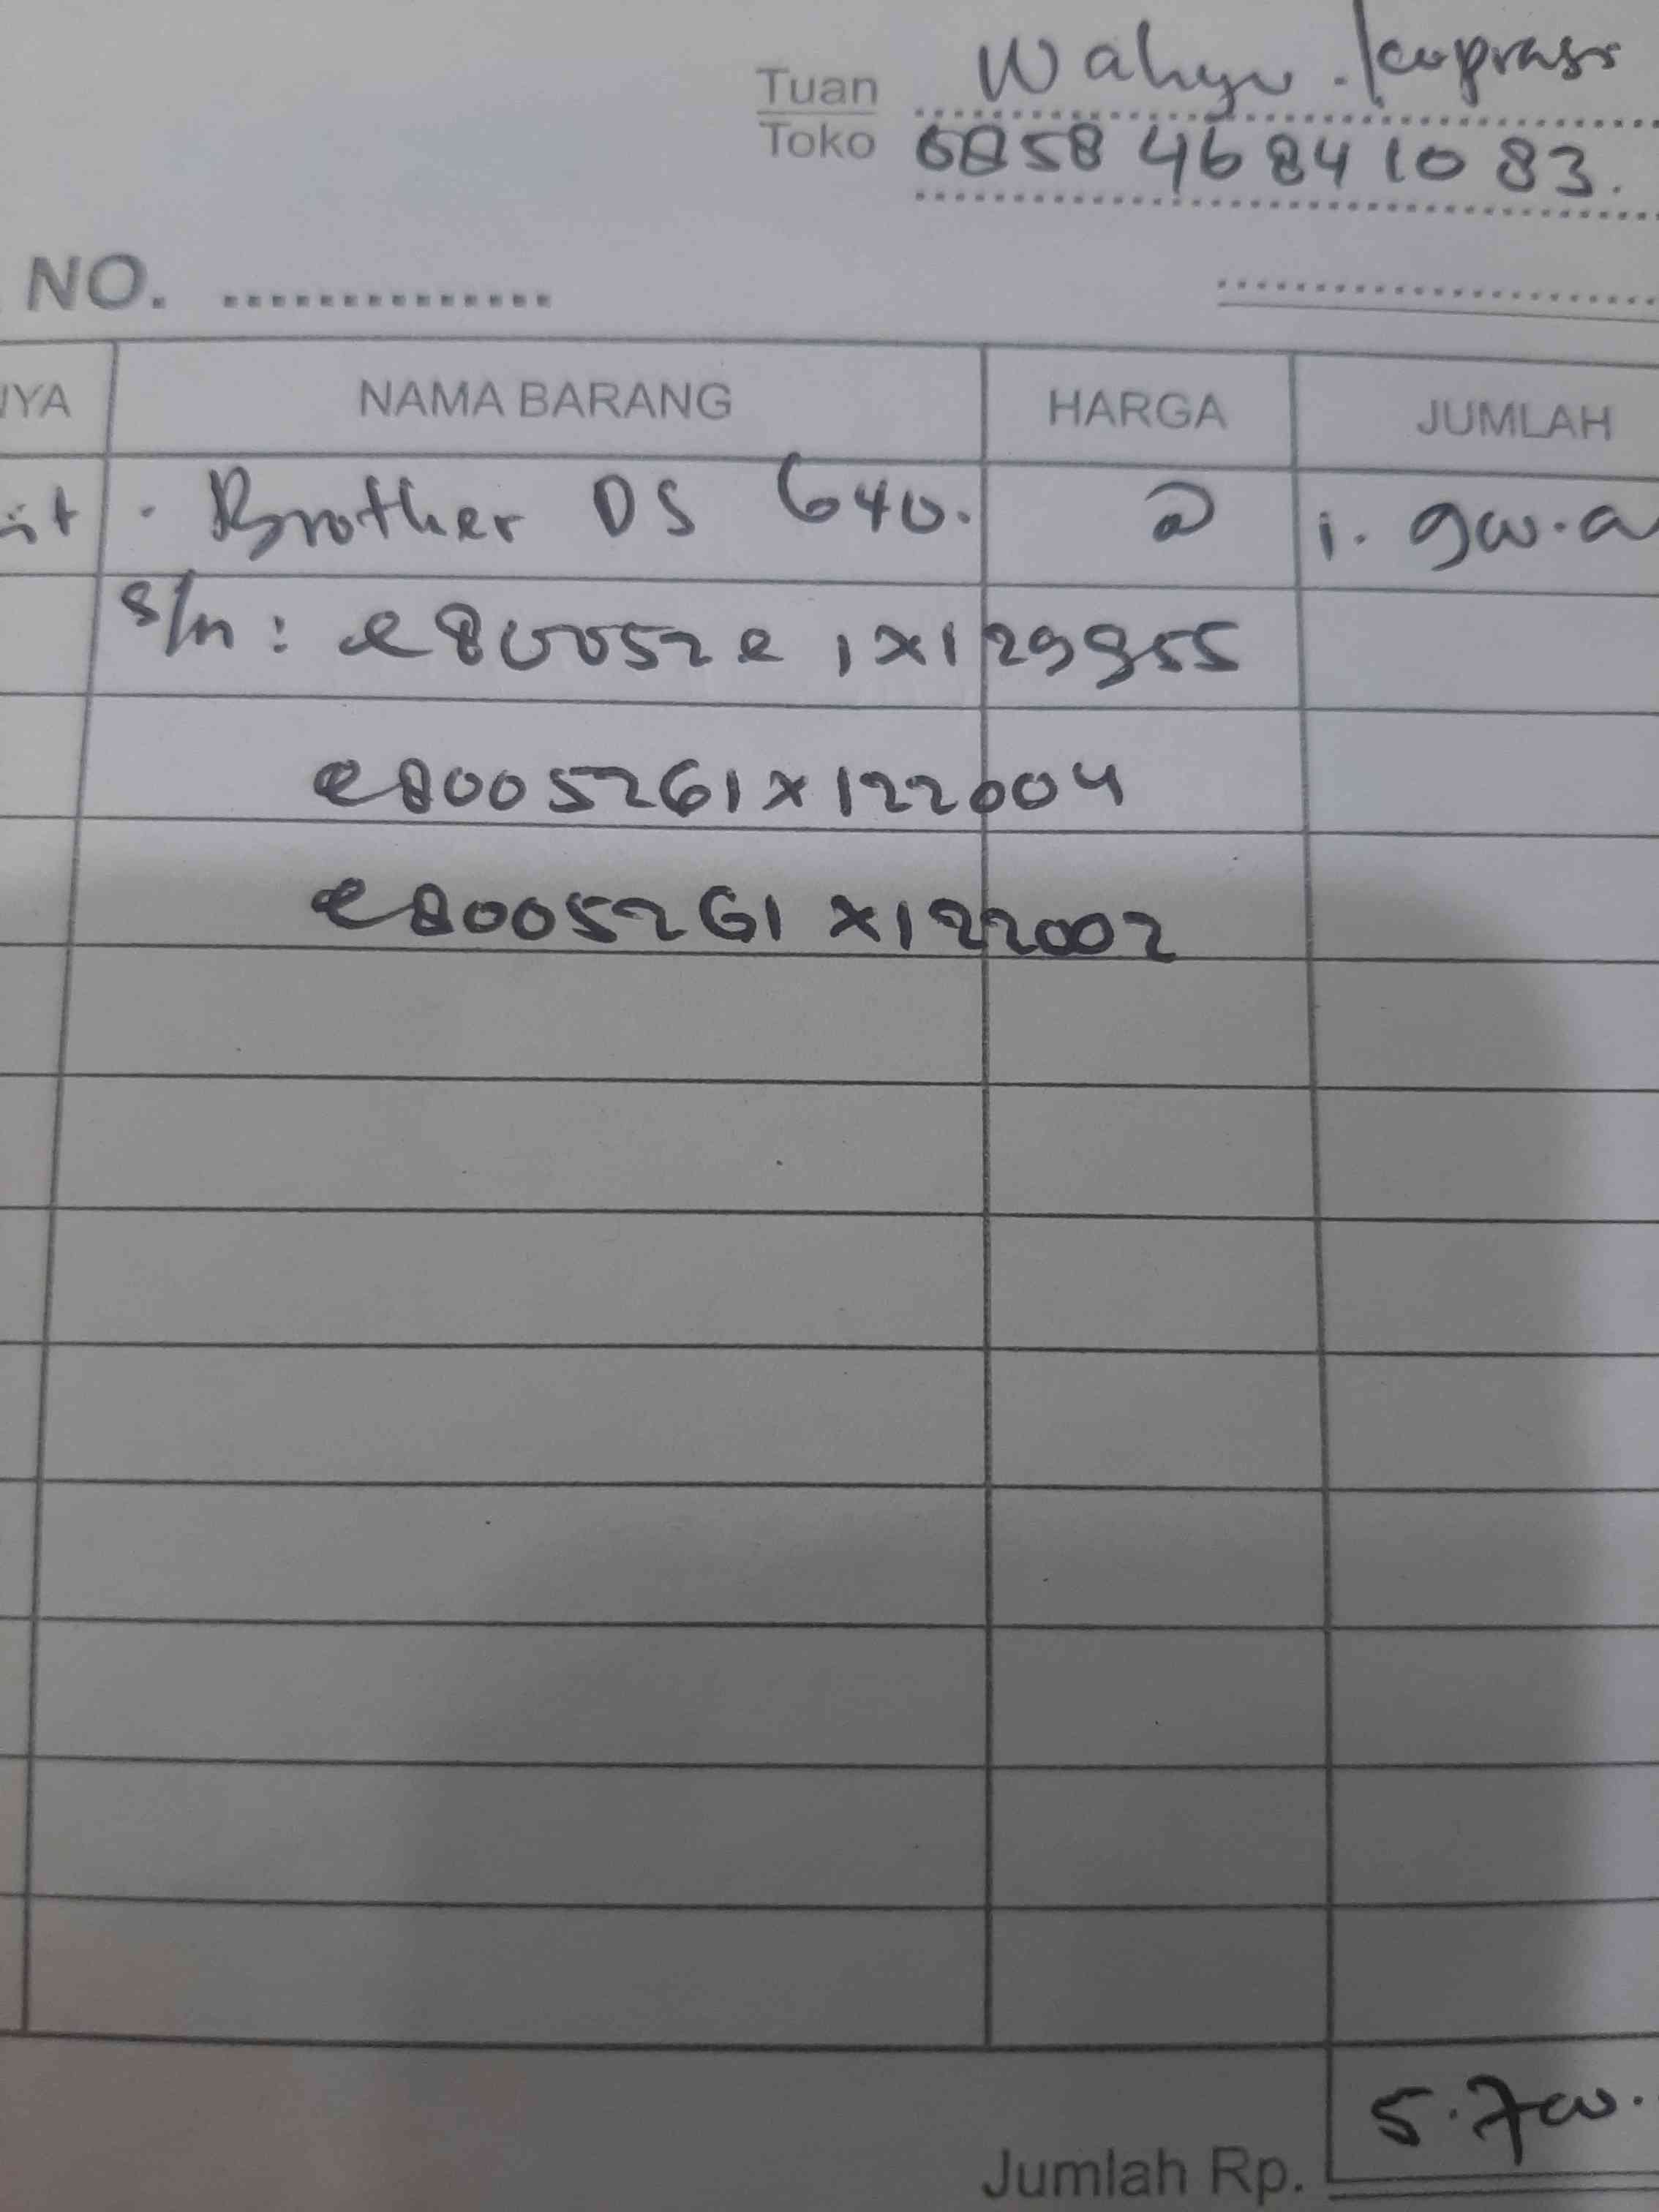 Tuan Wahyu . koprasi
Toko 085846841083.
NO. ..............
NYA NAMA BARANG HARGA JUMLAH
it . Brother DS 640. @ 1. 900.0
s/n : e80052e1x129955
e8005261x122004
e80052G1x122002
Jumlah Rp. 5.700.